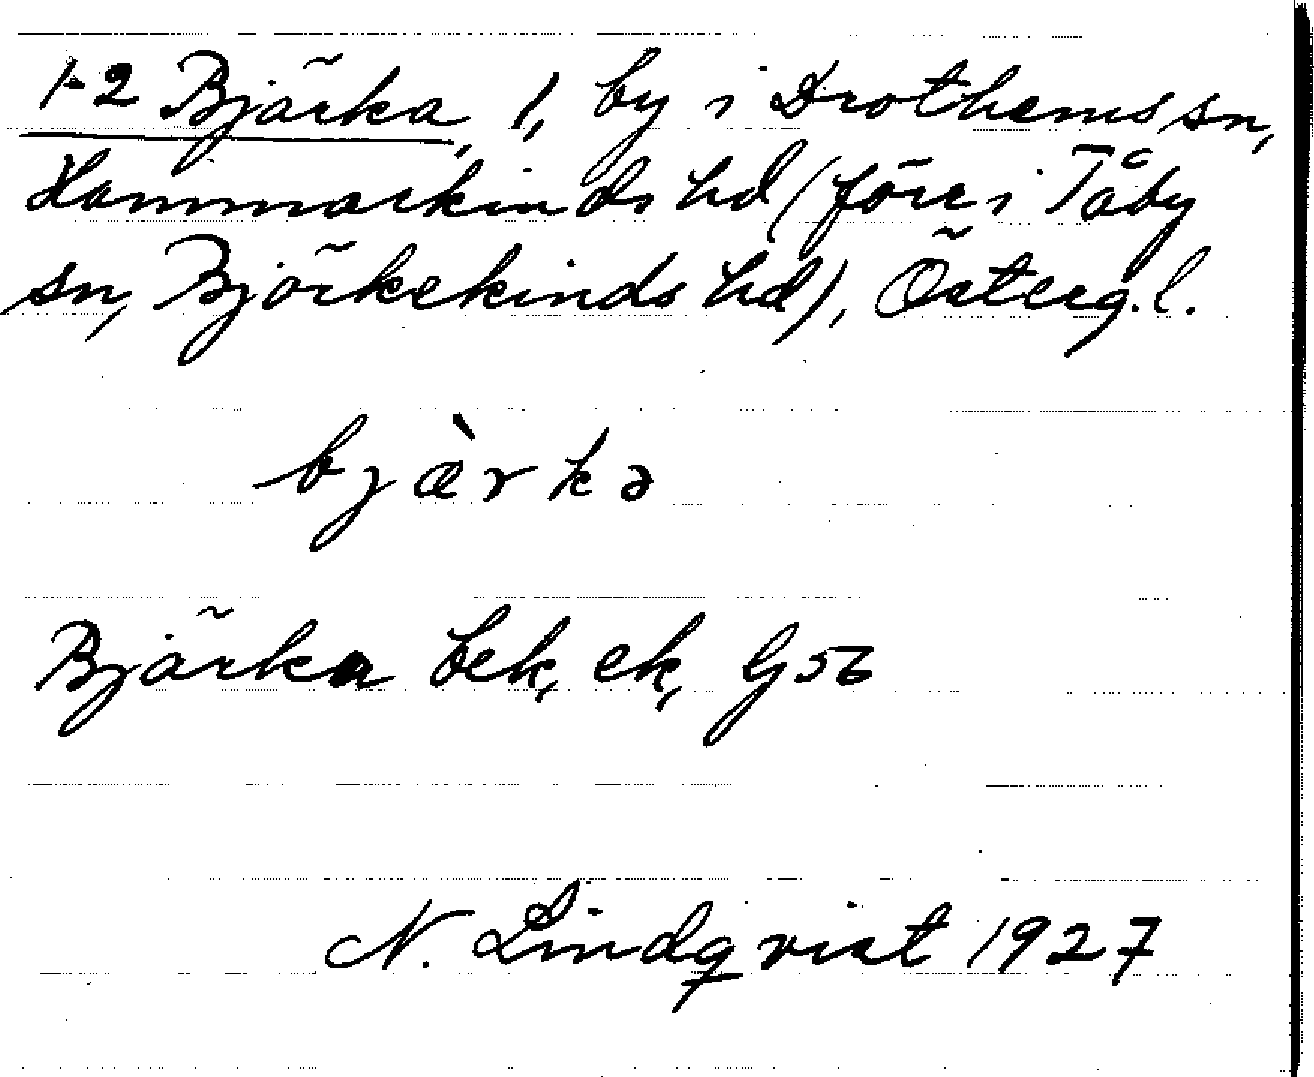 1-2 Bjärka, 1, by i Drothems sn,
Hammarkinds hd (förr i Tåby
sn, Björkekinds hd), Österg. l.
bjæ̀rkə
Bjärka bek, ek, Gj 56
N. Lindqvist 1927